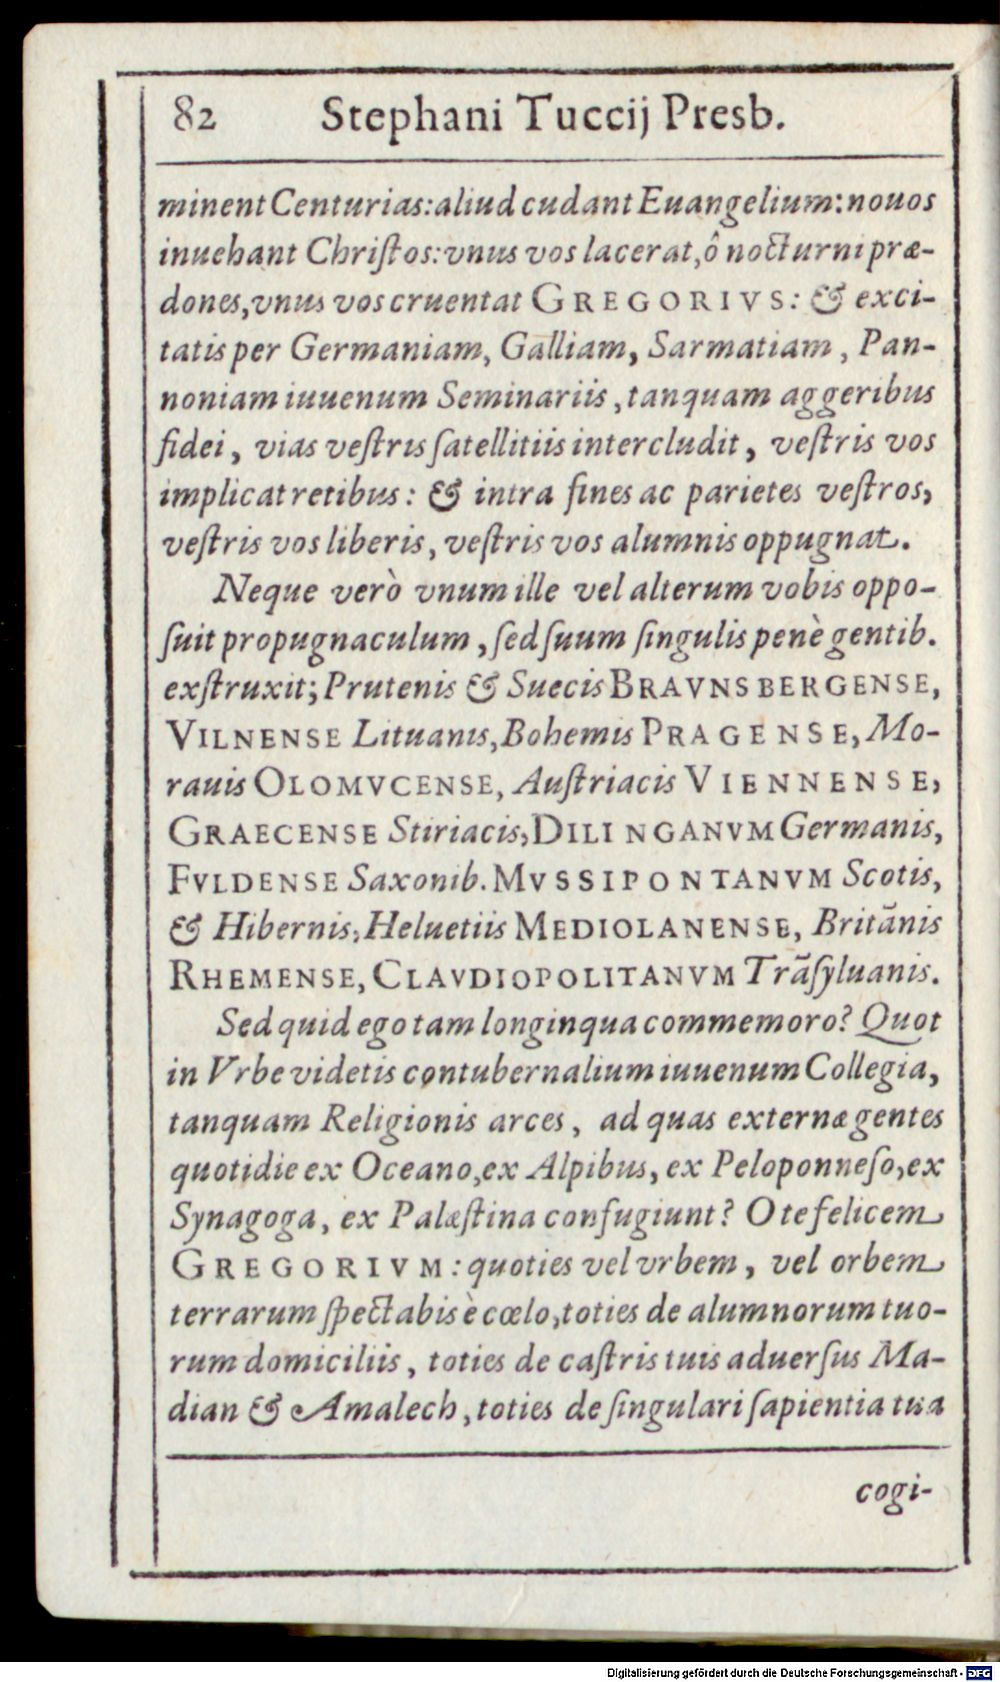 82 Stephani Tuccij Presb.
minent Centurias: aliud cudant Euangelium: nouos
inuehant Chriſtos: vnus vos lacerat, ô nocturni præ-
dones, vnus vos cruentat GREGORIVS: & exci-
tatis per Germaniam, Galliam, Sarmatiam, Pan-
noniam iuuenum Seminariis, tanquam aggeribus
fidei, vias veſtris ſatellitiis intercludit, veſtris vos
implicat retibus: & intra fines ac parietes veſtros,
veſtris vos liberis, veſtris vos alumnis oppugnat.
Neque verò vnum ille vel alterum vobis oppo-
ſuit propugnaculum, ſed ſuum ſingulis penè gentib.
exſtruxit; Prutenis & Suecis BRAVNSBERGENSE,
VILNENSE Lituanis, Bohemis PRAGENSE, Mo-
rauis OLOMVCENSE, Auſtriacis VIENNENSE,
GRAECENSE Stiriacis, DILINGANVM Germanis,
FVLDENSE Saxonib. MVSSIPONTANVM Scotis,
& Hibernis, Heluetiis MEDIOLANENSE, Britãnis
RHEMENSE, CLAVDIOPOLITANVM Trãſyluanis.
Sed quid ego tam longinqua commemoro? Quot
in Vrbe videtis contubernalium iuuenum Collegia,
tanquam Religionis arces, ad quas externæ gentes
quotidie ex Oceano, ex Alpibus, ex Peloponneſo, ex
Synagoga, ex Palæſtina confugiunt? O te felicem
GREGORIVM: quoties vel vrbem, vel orbem
terrarum ſpectabis è cœlo, toties de alumnorum tuo-
rum domiciliis, toties de caſtris tuis aduerſus Ma-
dian & Amalech, toties de ſingulari ſapientia tua
cogi-
Digitalisierung gefördert durch die Deutsche Forschungsgemeinschaft - DFG